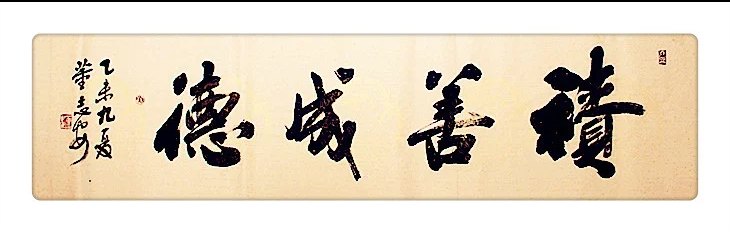 積善成德
乙未九夏